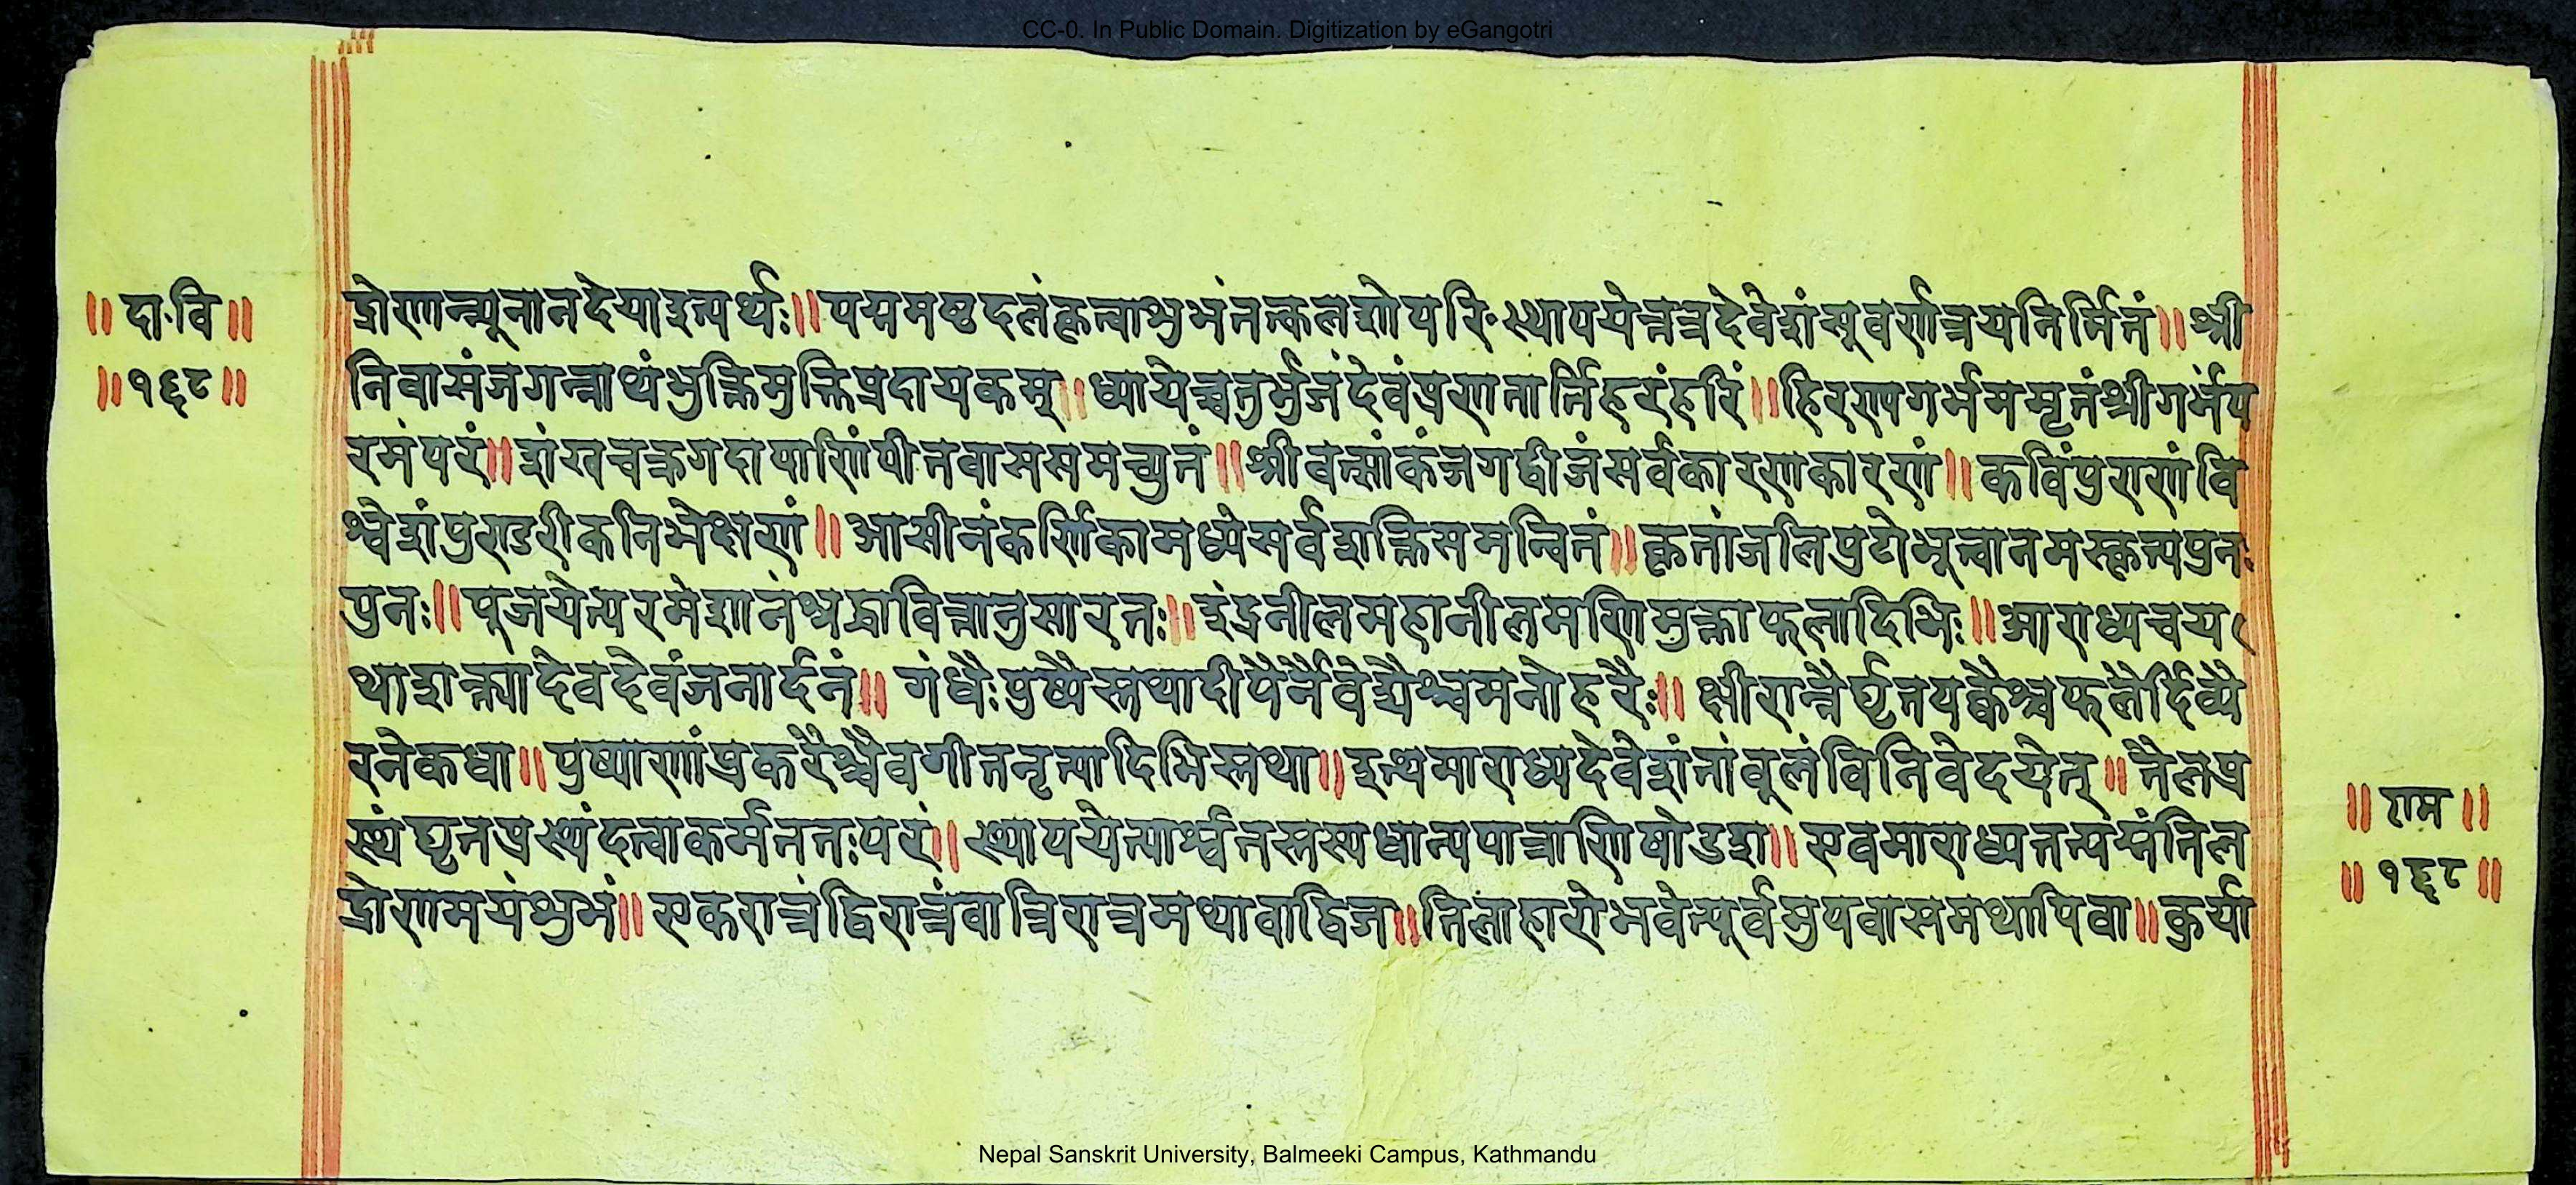 CC-0. In Public Domain. Digitization by eGangotri
॥ दा॰वि ॥
॥ १६८ ॥
द्रोणान्न्यूनानदेयाइत्यर्थः॥ पद्ममष्टदलंकृत्वाशुभंतत्कलशोपरि॰स्थापयेत्तत्रदेवेशंसूवर्णत्रयनिर्मितं॥ श्री
निवासंजगन्नाथंभुक्तिमुक्तिप्रदायकम्॥ ध्यायेच्चतुर्भुजंदेवंप्रणतार्त्तिहरंहरिं॥ हिरण्यगर्भममृतंश्रीगर्भंप
रमंपरं॥ शंखचक्रगदापाणिंपीतवाससमच्युतं॥ श्रीवत्सांकंजगद्बीजंसर्वकारणकारणं॥ कविंपुराणंवि
श्वेशंपुण्डरीकनिभेक्षणं॥ आसीनंकर्णिकामध्येसर्वशक्तिसमन्वितं॥ कृतांजलिपुटोभूत्वानमस्कृत्यपुनः
पुनः॥ पूजयेत्परमेशानंश्रद्धावित्तानुसारतः॥ इंद्रनीलमहानीलमणिमुक्ताफलादिभिः॥ आराध्यचय
थाशक्त्यादेवदेवंजनार्दनं॥ गंधैःपुष्पैस्तथादीपैर्नैवेद्यैश्चमनोहरैः॥ क्षीरान्नैर्घृतपक्वैश्चफलैर्दिव्यै
रनेकधा॥ पुष्पाणांप्रकरैश्चैवगीतनृत्यादिभिस्तथा॥ इत्थमाराध्यदेवेशंतांबूलंविनिवेदयेत्॥ तैलप्र
स्थंघृतप्रस्थंदत्वाकर्मततःपरं॥ स्थापयेत्पार्श्वतस्तस्यधान्यपात्राणिषोडश॥ एवमाराध्यतत्पद्मंतिल
द्रोणमयंशुभं॥ एकरात्रंद्विरात्रंवात्रिरात्रमथवाद्विज॥ तिलाहारोभवेत्पूर्वमुपवासमथापिवा॥ कुर्या
॥ राम ॥
॥ १६८ ॥
Nepal Sanskrit University, Balmeeki Campus, Kathmandu